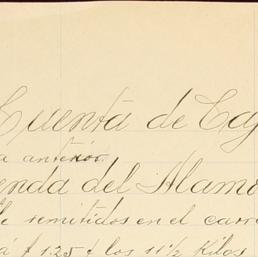 Cuenta de Caj
a anterior
enda del Alamo
remitidos en el carr
á $ 1.25 ¢ los 11½ Kilos